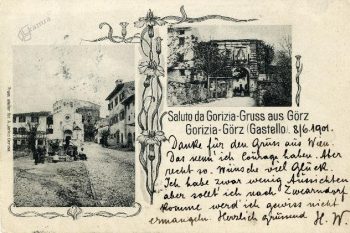 Kamra
Saluto da Gorizia-Gruss aus Görz
Gorizia-Görz (Castello). 8/6.1901.
Danke für den Gruss aus Wien.
Das nenn ich Courage haben. Aber
recht so. Wünsche viel Glück.
Ich habe zwar wenig Aussichten
aber sollt ich nach
komme, werd ich gewiss nicht
ermangeln. Herzlich grüssend H. W.